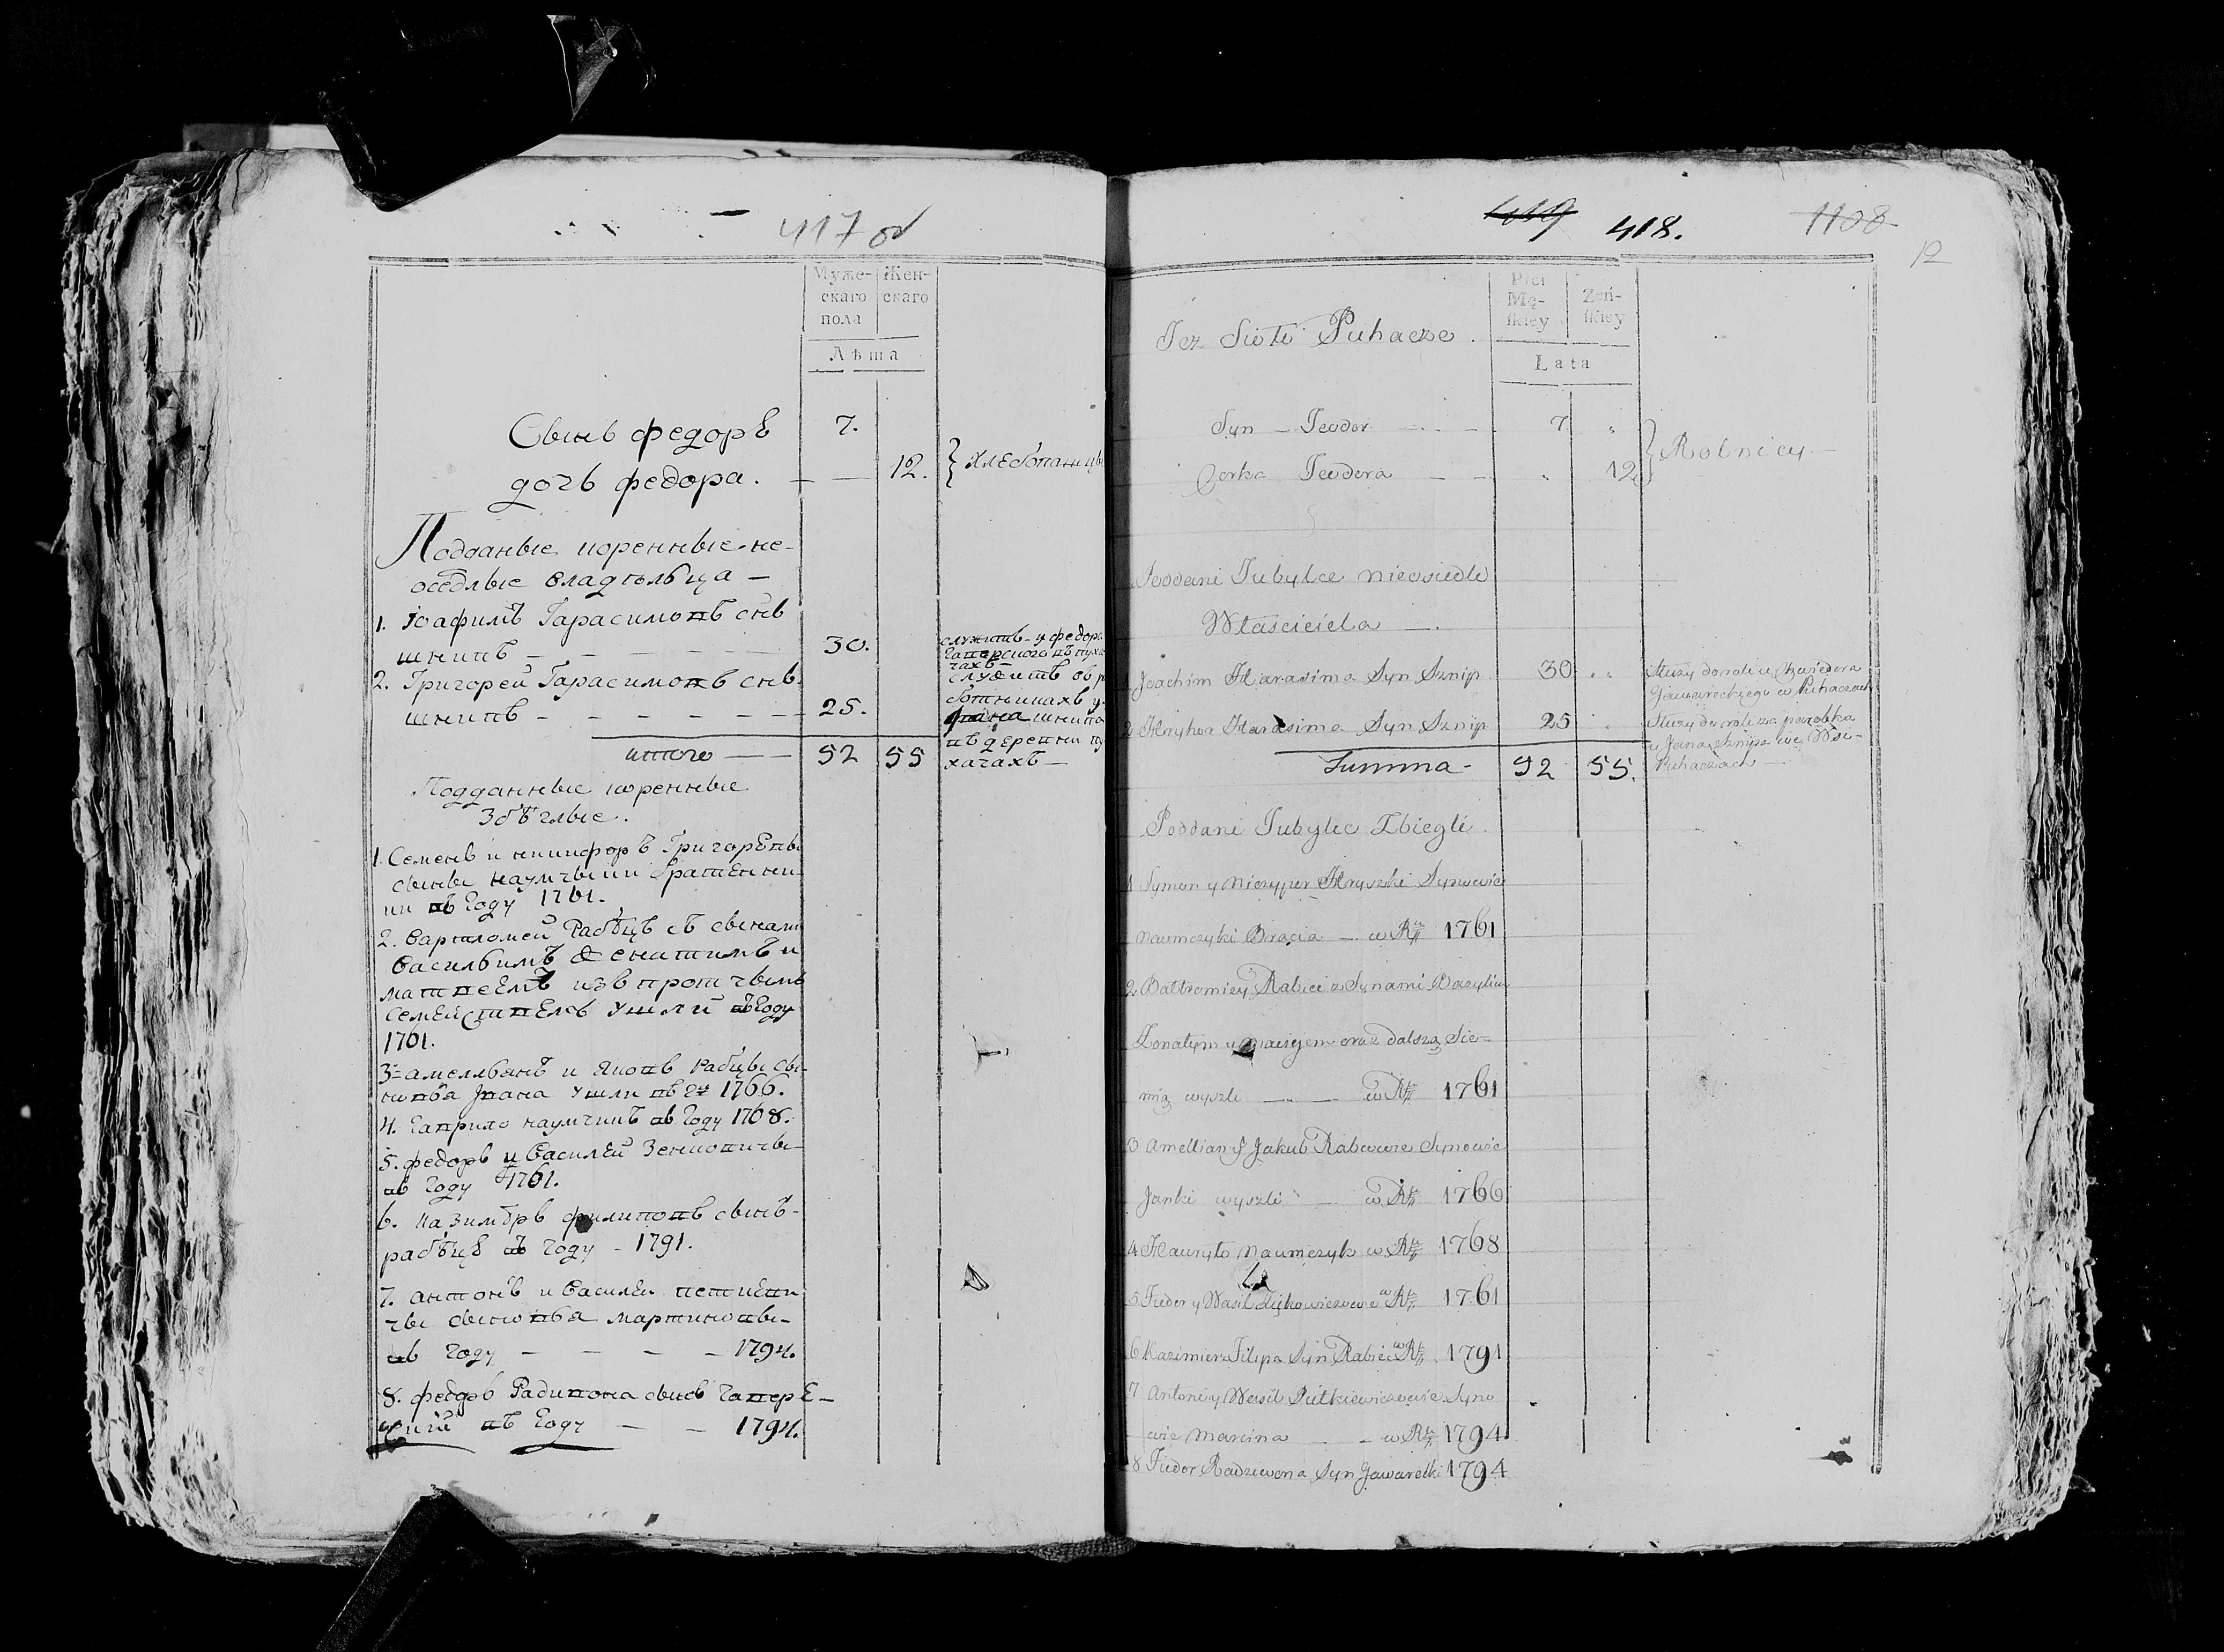 417 об
Муже-
скаго
пола
Жен-
скаго
Лѣта
Сынъ федорЪ 7.
дочъ федора. — — 12.
хлебопашцы
Подданые коренные не-
оседлые владѣльца —
1. Іоафимъ Гарасимовъ снъ
шнипъ — — — — — 30.
2. Григорей Гарасимовъ снъ
шнипъ — — — — — — 25.
служитъ у федора
служитъ в ра
ботникахъ у
шнипа
въ деревни пу
хачахъ —
итого — — 52 55
Подданные коренные
Збѣглые.
1. Семенъ и никифоръ Григорѣвы
сыны наумчыки
въ Году 1761.
2. Вартломей Рабѣцъ съ сынами
Васильимъ Игнатимъ и
матвеемъ изъ протчымъ
семействомъ ушли въ Году
1761.
3. амельянъ и Яковъ Рабцы сы-
новья Ивана ушли въ Гд 1766.
4. Гаврило наумчикъ въ Году 1768.
5. федоръ и Василей
въ Году 1761.
6. казимѣръ филиповъ сынъ
рабѣцъ въ Году - 1791.
7. антонъ и Василей петкеви
чы сыновья мартиновы
въ Году — — — — 1794.
8. федоръ Радивона сынъ Гаверѣ-
лкій въ Году — — 1794.
419 418. 1108
12
Tez Sioło Puhacze.
Płci
Mę-
skiey
Żeń-
skiey
Lata
Syn — Teodor — 7 „
Corka Teodora — — „ 12
Rolnicy —
Poddani Tubylce nieosiedli
Właściciela —.
1 Joachim Harasima Syn Sznip 30 „
Służy do roli u Chwiedora
Gawareckiego w Puhaczach
2 Hryhor Harasima Syn Sznip 25 „
Służy do roli za parobka
u Jana Sznipa we Wsi
Puhaczach —
Summa - 52 55.
Poddani Tubylce Zbiegli
1 Symon y Niczyper Hryszki Synowie
Naumczyki Bracia — w Rku 1761
2 Bałtromiey Rabiec z Synami Bazylim
oraz dalszą Sie=
mią wyszli — — w Rku 1761
3 Amellian y Jakub Rabcowie Synowie
Janki wyszli — w Rku 1766
4 Hawryło Naumczyk w Rku 1768
5 Fiedor y Wasil w Rku 1761
6 Kazimierz Filipa Syn Rabiec w Rku 1791
7 Antoni y Wasil Pietkiewiczowie Syno
wie Marcina — w Rku 1794
8 Fiedor Radziwona Syn Gawarelki 1794